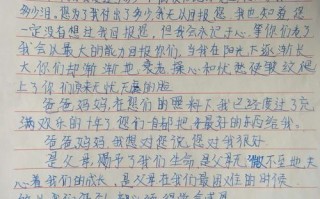 多少泪,您为了我付出了多少我无以回报您,我也知道您
一定没有想过我回报您,但我会永记于心,等你们老了
我会以最大的能力回报你们,当我在阳光下逐渐长
大,你们却渐渐地衰老操心和忧愁使皱纹爬
上了你们原来无忧无虑的脸
爸爸妈妈,在您们的照料下,我已经度过了充
满欢乐的十年了您们自都把最好的东西给我。
爸爸妈妈,我想对您说,您对我很好
是父母,赐予了我们生命,是父母无微不至地关
心着我们的成长,是父母在我们最困难的时候